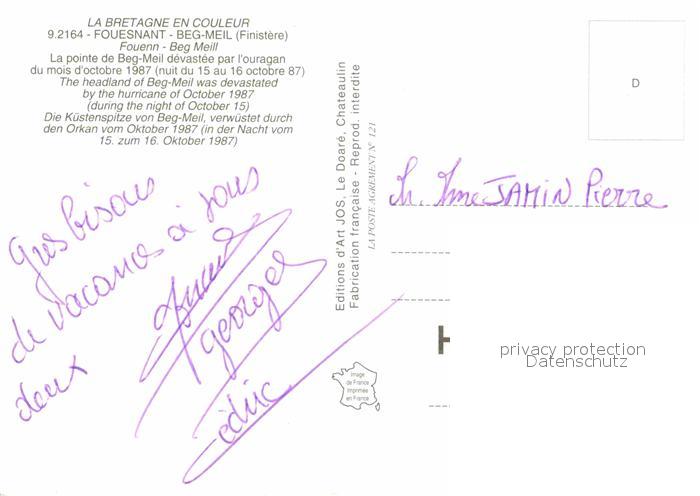 LA BRETAGNE EN COULEUR
9.2164 - FOUESNANT - BEG-MEIL (Finistère)
Fouenn - Beg Meill
La pointe de Beg-Meil dévastée par l'ouragan
du mois d'octobre 1987 (nuit du 15 au 16 octobre 87)
The headland of Beg-Meil was devastated
by the hurricane of October 1987
(during the night of October 15)
Die Küstenspitze von Beg-Meil, verwüstet durch
den Orkan vom Oktober 1987 (in der Nacht vom
15. zum 16. Oktober 1987)
Gros bisous
de vacances à tous
deux
Georges
Cédric
Editions d'Art JOS, Le Doaré, Chateaulin
Fabrication française - Reprod. interdite
LA POSTE AGREMENT N° 121
D
M. Mme JAMIN Pierre
Image
de France
Imprimée
en France
privacy protection
Datenschutz